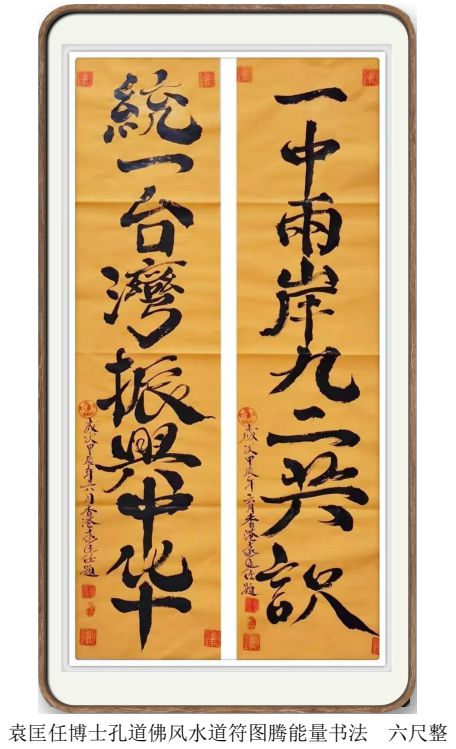 一中兩岸九二共識
歲次甲辰年六月香港袁匡任題
統一台灣振興中华
歲次甲辰年六月香港袁匡任題
袁匡任博士孔道佛风水道符图腾能量书法　六尺整